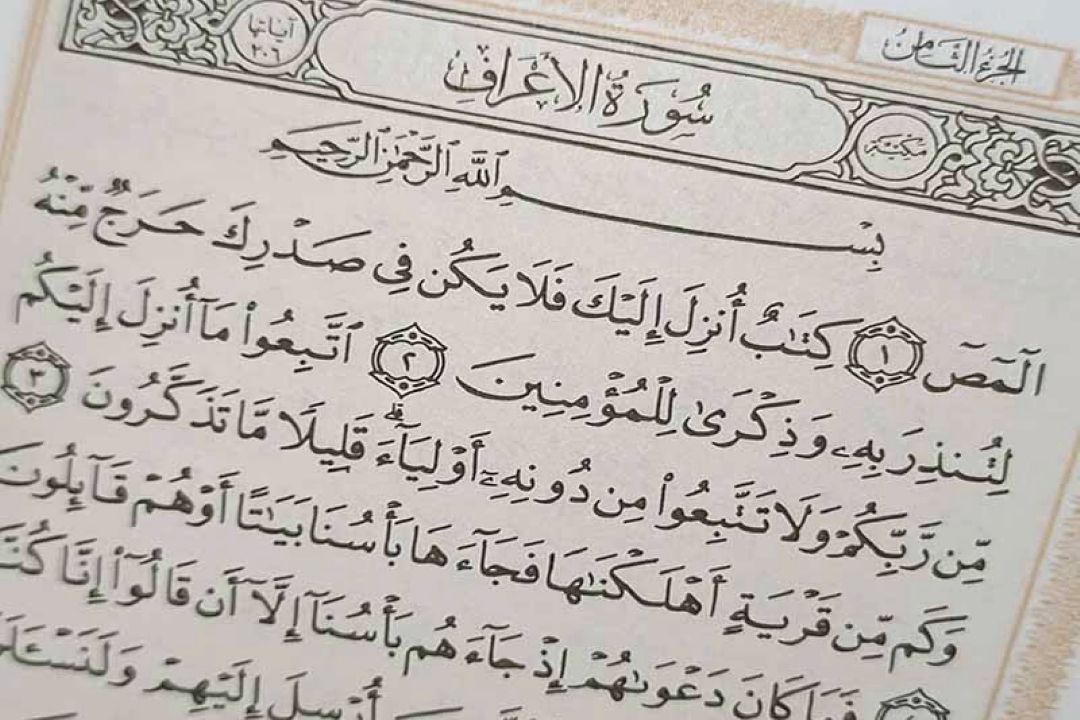 الجزء الثامن
سُورَةُ الأَعْرَافِ
مكية
آياتها ٢٠٦
بِسْمِ ٱللَّهِ ٱلرَّحْمَٰنِ ٱلرَّحِيمِ
الٓمٓصٓ ١ كِتَٰبٌ أُنزِلَ إِلَيْكَ فَلَا يَكُن فِى صَدْرِكَ حَرَجٌ مِّنْهُ
لِتُنذِرَ بِهِۦ وَذِكْرَىٰ لِلْمُؤْمِنِينَ ٢ ٱتَّبِعُوا۟ مَآ أُنزِلَ إِلَيْكُم
مِّن رَّبِّكُمْ وَلَا تَتَّبِعُوا۟ مِن دُونِهِۦٓ أَوْلِيَآءَ ۗ قَلِيلًا مَّا تَذَكَّرُونَ ٣
وَكَم مِّن قَرْيَةٍ أَهْلَكْنَٰهَا فَجَآءَهَا بَأْسُنَا بَيَٰتًا أَوْ هُمْ قَآئِلُونَ
فَمَا كَانَ دَعْوَىٰهُمْ إِذْ جَآءَهُم بَأْسُنَآ إِلَّآ أَن قَالُوٓا۟ إِنَّا كُنَّا
أُرْسِلَ إِلَيْهِمْ